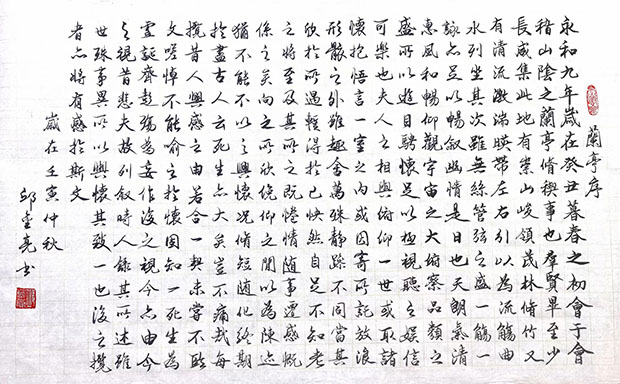 蘭亭序
永和九年歲在癸丑暮春之初會于會
稽山陰之蘭亭脩稧事也羣賢畢至少
長咸集此地有崇山峻領茂林脩竹又
有清流激湍暎帶左右引以為流觴曲
水列坐其次雖無絲管弦之盛一觴一
詠亦足以暢敘幽情是日也天朗氣清
惠風和暢仰觀宇宙之大俯察品類之
盛所以遊目騁懷足以極視聽之娛信
可樂也夫人之相與俯仰一世或取諸
懷抱悟言一室之內或因寄所託放浪
形骸之外雖趣舍萬殊靜躁不同當其
欣於所遇蹔得於己快然自足不知老
之將至及其所之既惓情隨事遷感慨
係之矣向之所欣俛仰之間以為陳迹
猶不能不以之興懷況脩短隨化終期
於盡古人云死生亦大矣豈不痛哉每
攬昔人興感之由若合一契未嘗不臨
文嗟悼不能喻之於懷固知一死生為
虛誕齊彭殤為妄作後之視今亦由今
之視昔悲夫故列敘時人錄其所述雖
世殊事異所以興懷其致一也後之攬
者亦將有感於斯文
歲在壬寅仲秋
邱亮书